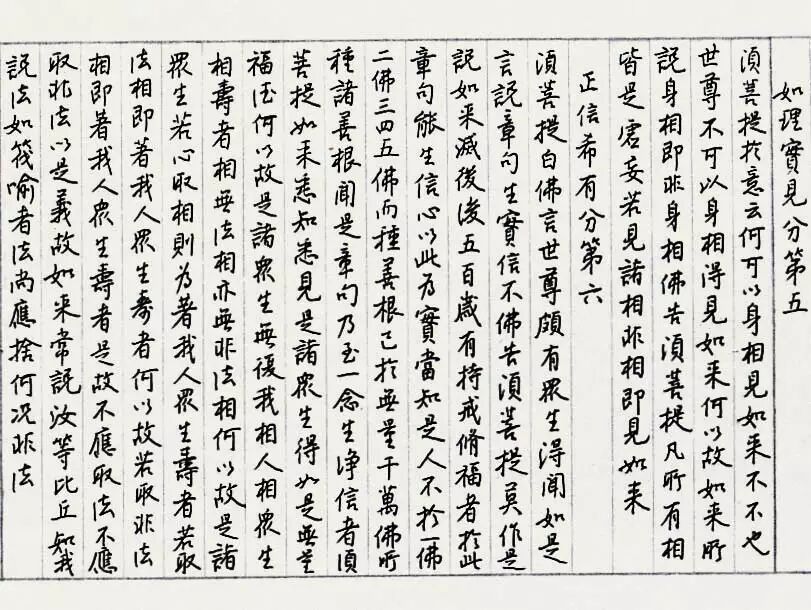 如理實見分第五
湏菩提扵意云何可以身相見如来不不也
世尊不可以身相得見如来何以故如来所
説身相即非身相佛告湏菩提凡所有相
皆是虚妄若見諸相非相即見如来
正信希有分第六
湏菩提白佛言世尊頗有眾生得聞如是
言説章句生實信不佛告湏菩提莫作是
説如来滅後後五百嵗有持戒脩福者扵此
章句能生信心以此為實當知是人不扵一佛
二佛三四五佛而種善根已扵無量千萬佛所
種諸善根聞是章句乃至一念生淨信者湏
菩提如来悉知悉見是諸眾生得如是無量
福德何以故是諸眾生無復我相人相眾生
相壽者相無法相亦無非法相何以故是諸
眾生若心取相則為著我人眾生壽者若取
法相即著我人眾生壽者何以故若取非法
相即著我人眾生壽者是故不應取法不應
取非法以是義故如来常説汝等比丘知我
説法如筏喻者法尚應捨何况非法